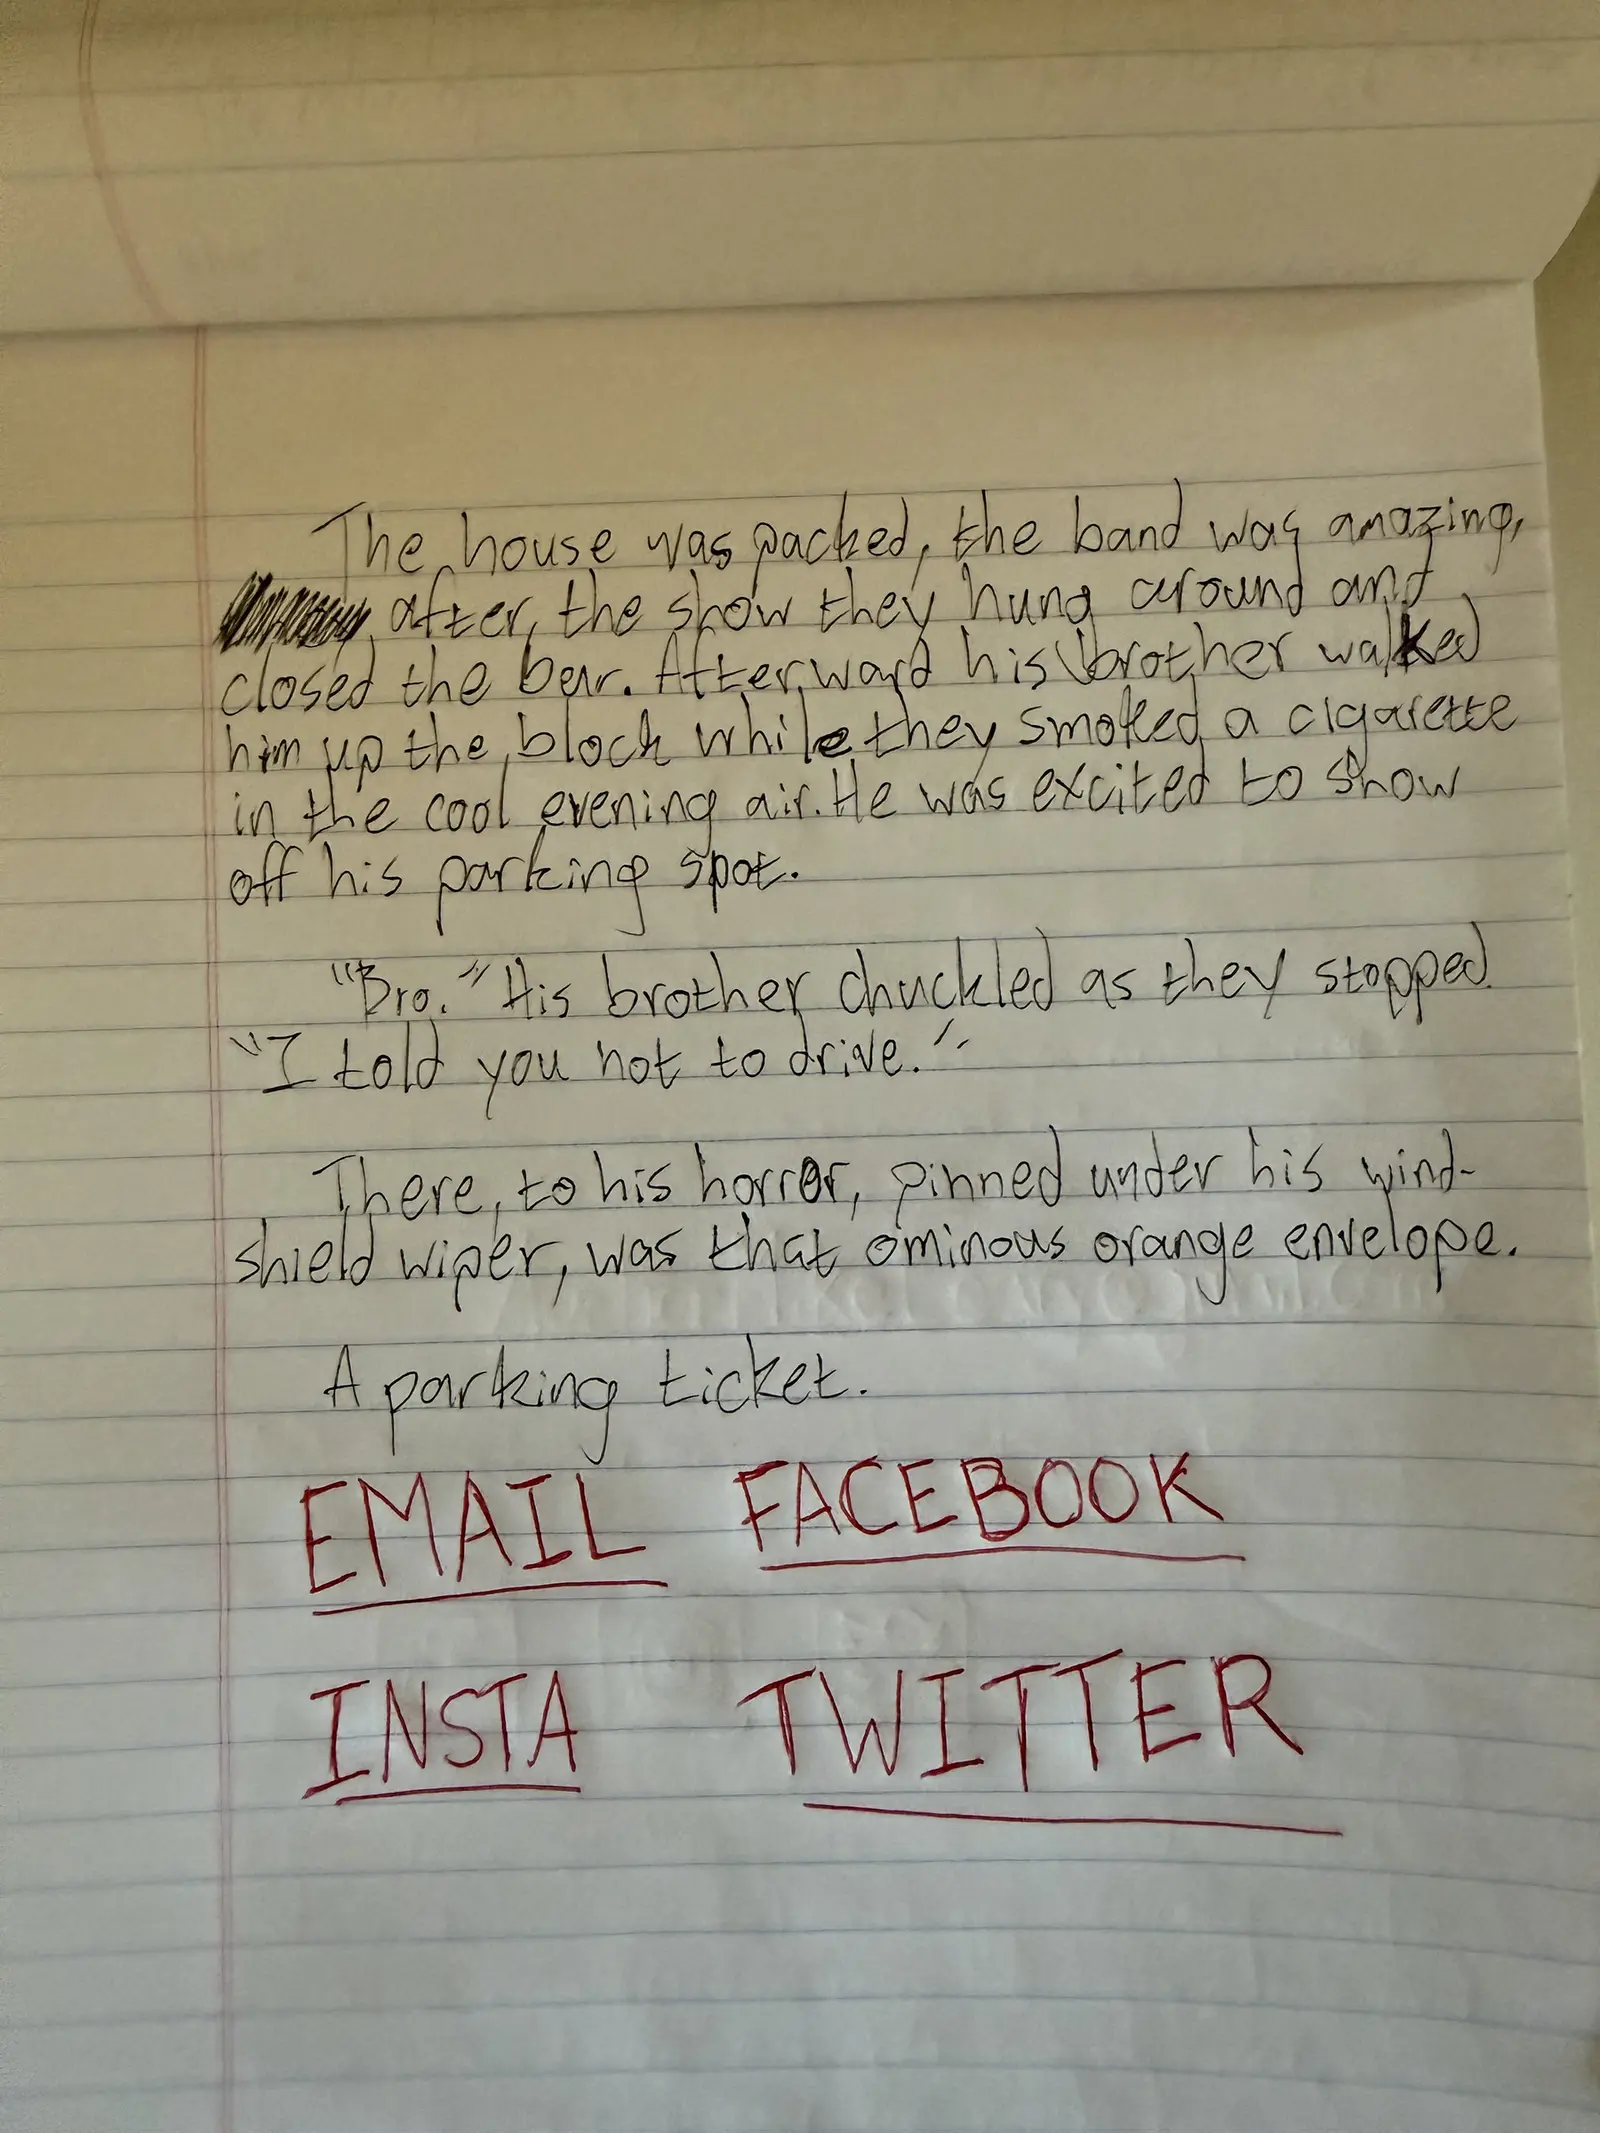 The house was packed, the band was amazing,
after, the show they hung around and
closed the bar. Afterward his brother walked
him up the block while they smoked a cigarette
in the cool evening air. He was excited to show
off his parking spot.
"Bro." His brother chuckled as they stopped.
"I told you not to drive."
There, to his horror, pinned under his wind-
shield wiper, was that ominous orange envelope.
A parking ticket.
EMAIL FACEBOOK
INSTA TWITTER